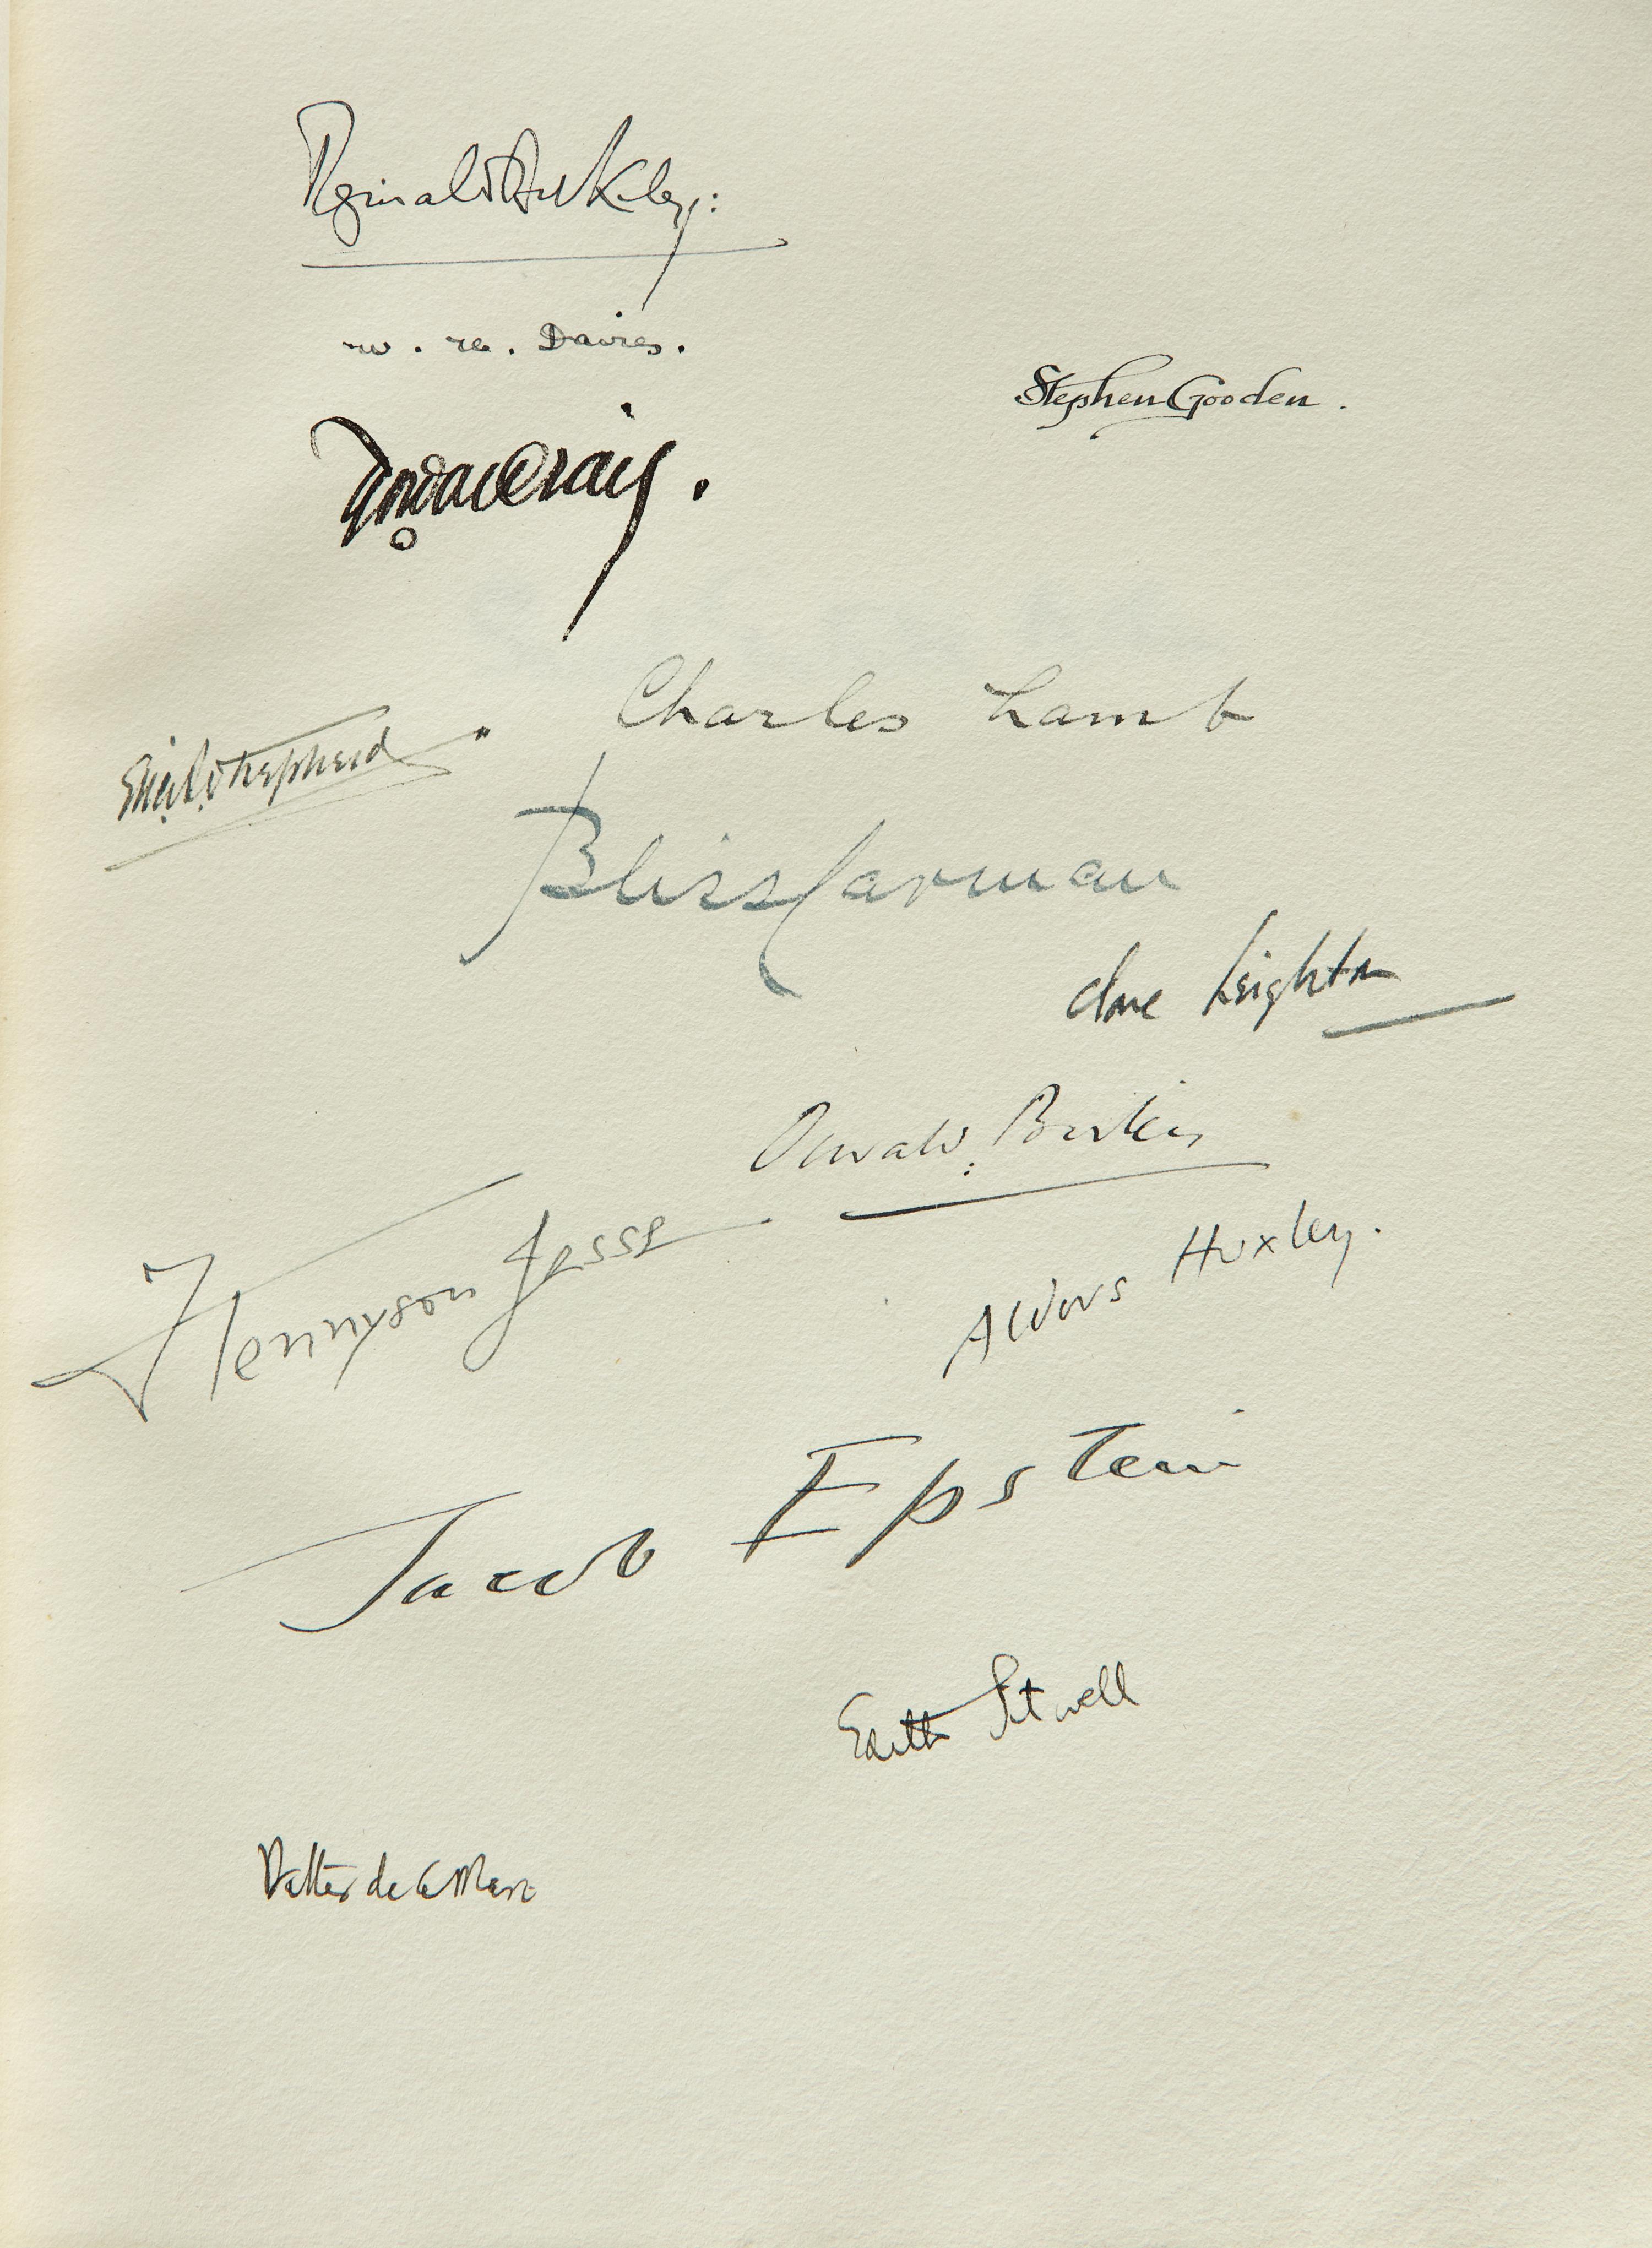 Reginald Arkell:
W. H. Davies.
Stephen Gooden.
Gordon Craig.
Charles Lamb
Ernest H Shepherd
Bliss Carman
Clare Leighton
Oswald Birley
F Tennyson Jesse
Aldous Huxley.
Jacob Epstein
Edith Sitwell
Walter de la Mare